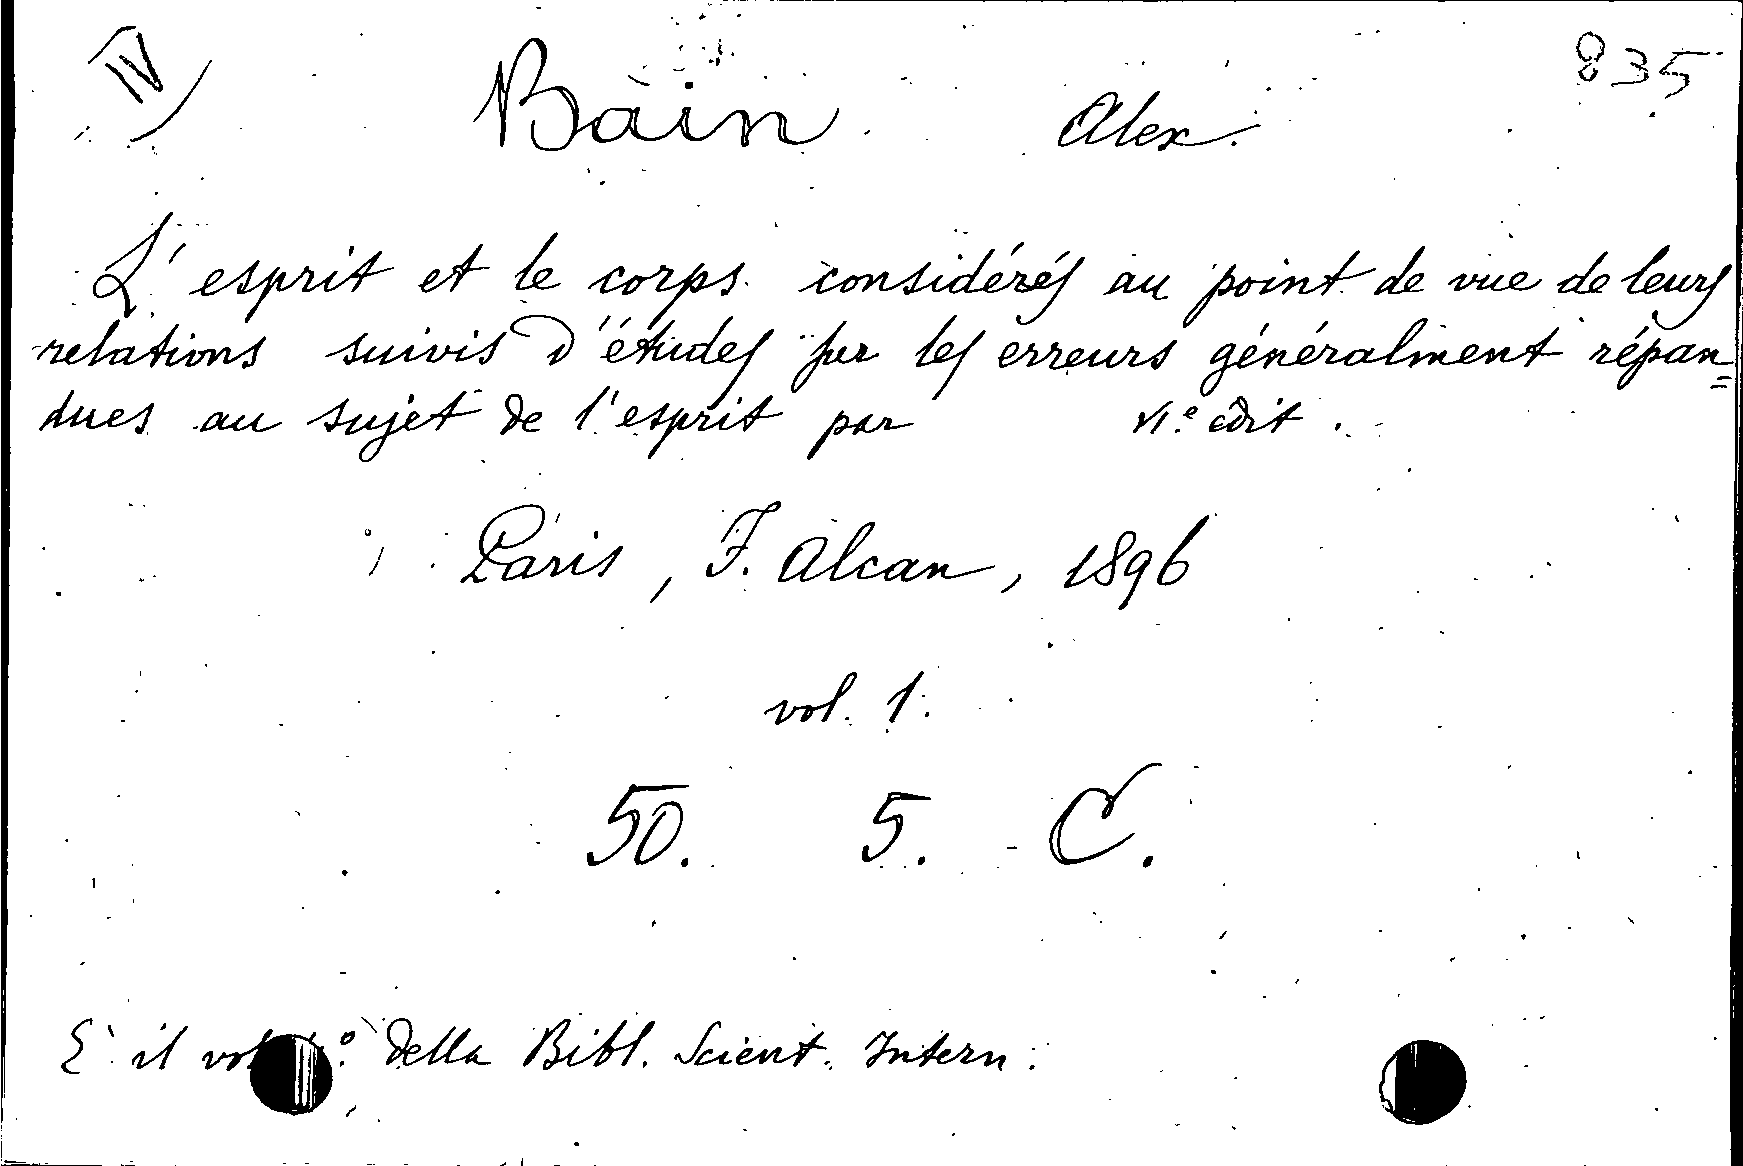 IV
835
Bain Alex.
L'esprit et le corps considérés au point de vue de leurs
relations suivis d'études sur les erreurs généralment répan=
dues au sujet de l'esprit par VI.e édit.
Paris, F. Alcan, 1896
vol. 1.
50. 5. C.
È il vol della Bibl. Scient. Intern.